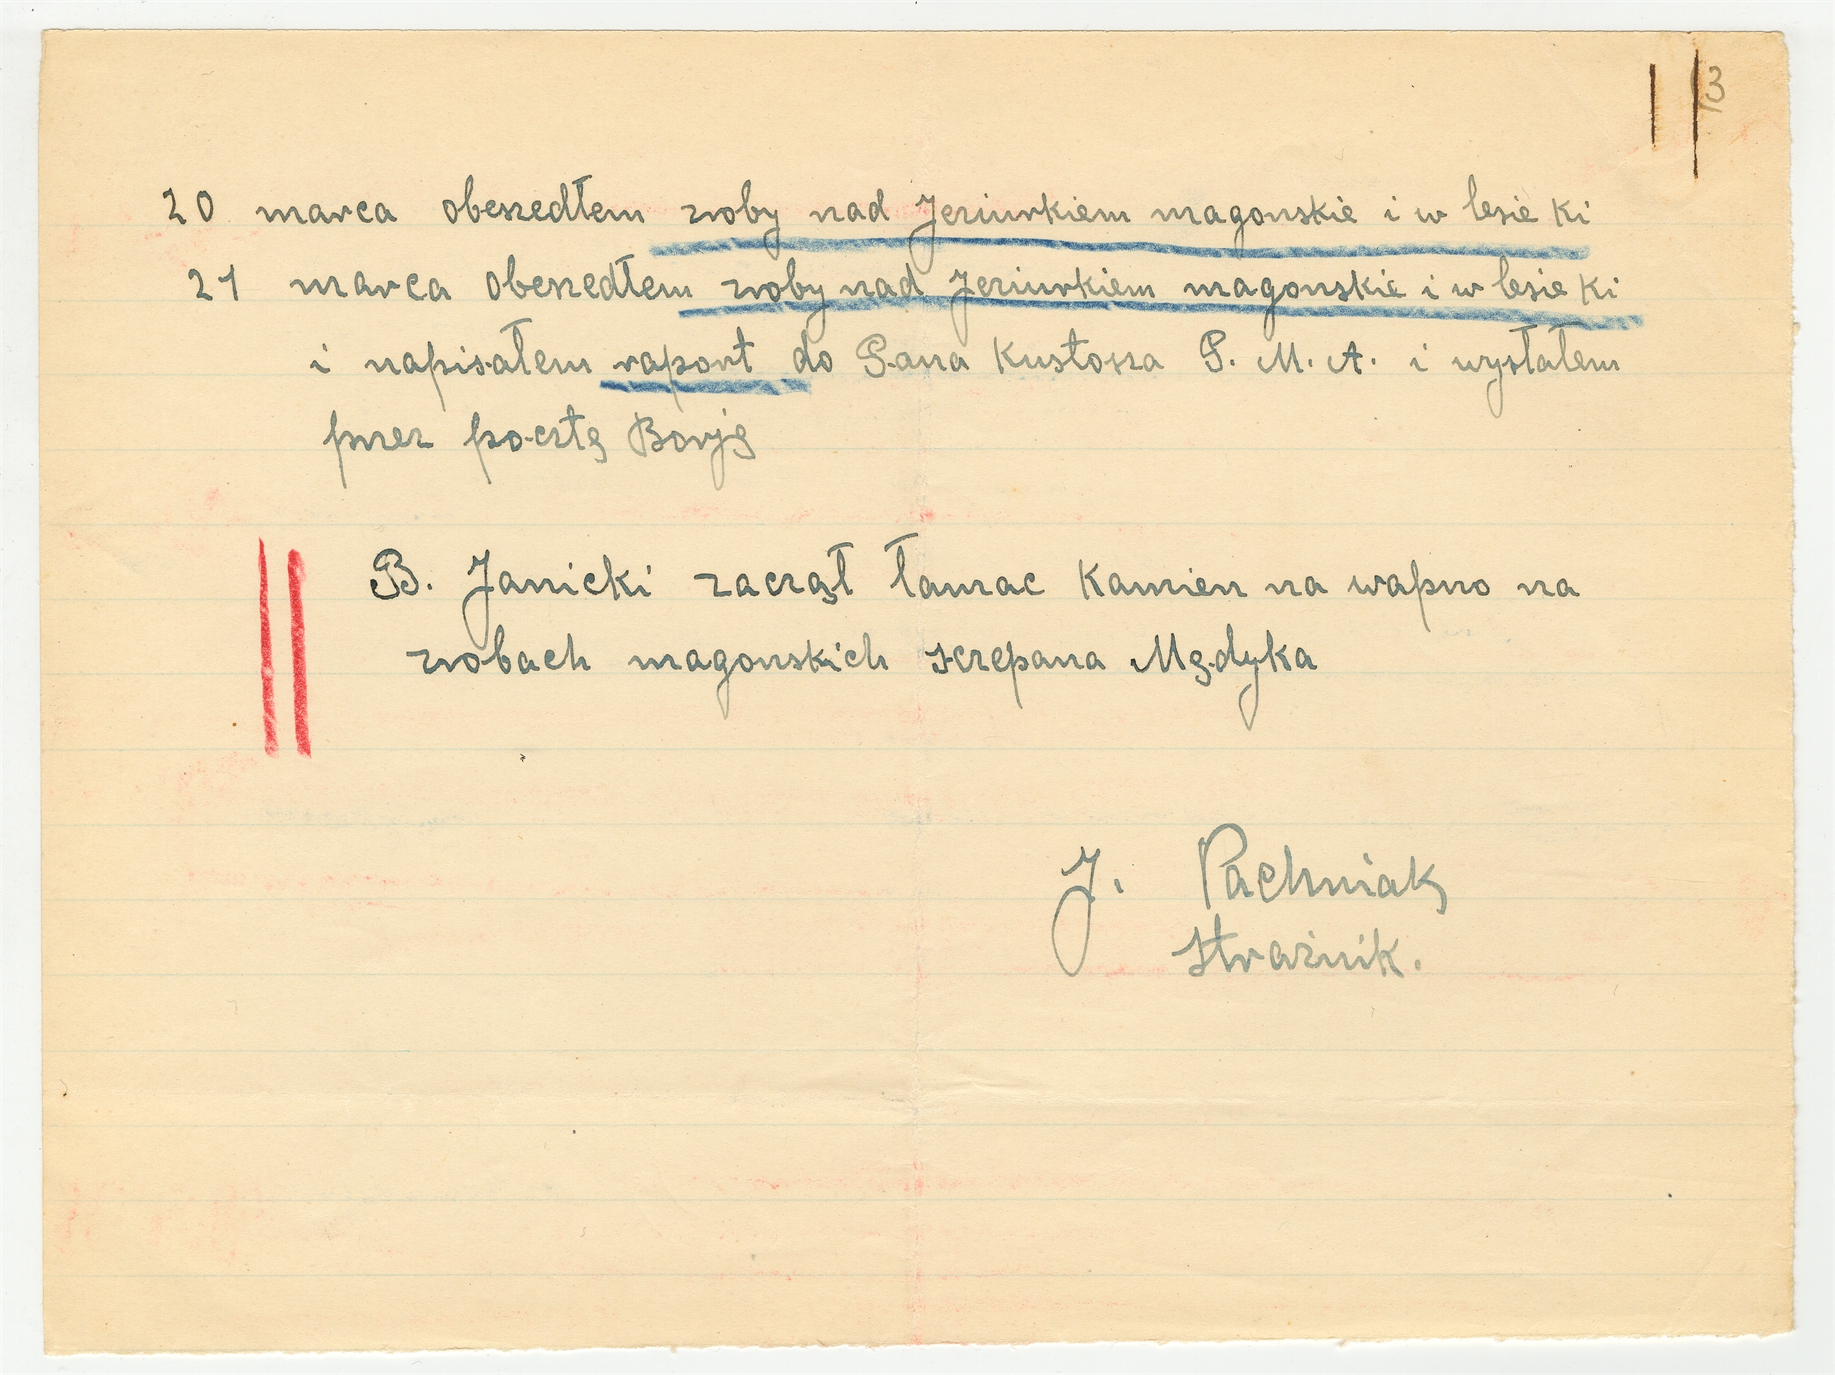 13
20 marca obeszedłem zroby nad Jeziurkiem magonskie i w lesie ki
21 marca obeszedłem zroby nad Jeziurkiem magonskie i w lesie ki
i napisałem raport do Pana Kustosza P. M. A. i wysłałem
przez pocztę Borję
B. Janicki zaczął łamac kamien na wapno na
zrobach magonskich szczepana Mędyka
J. Pachniak
strażnik.